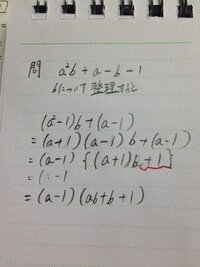 問 a²b + a - b - 1
bについて整理すると
(a²-1)b + (a-1)
= (a+1)(a-1)b + (a-1)
= (a-1) {(a+1)b + 1}
= (a-1
= (a-1)(ab+b+1)